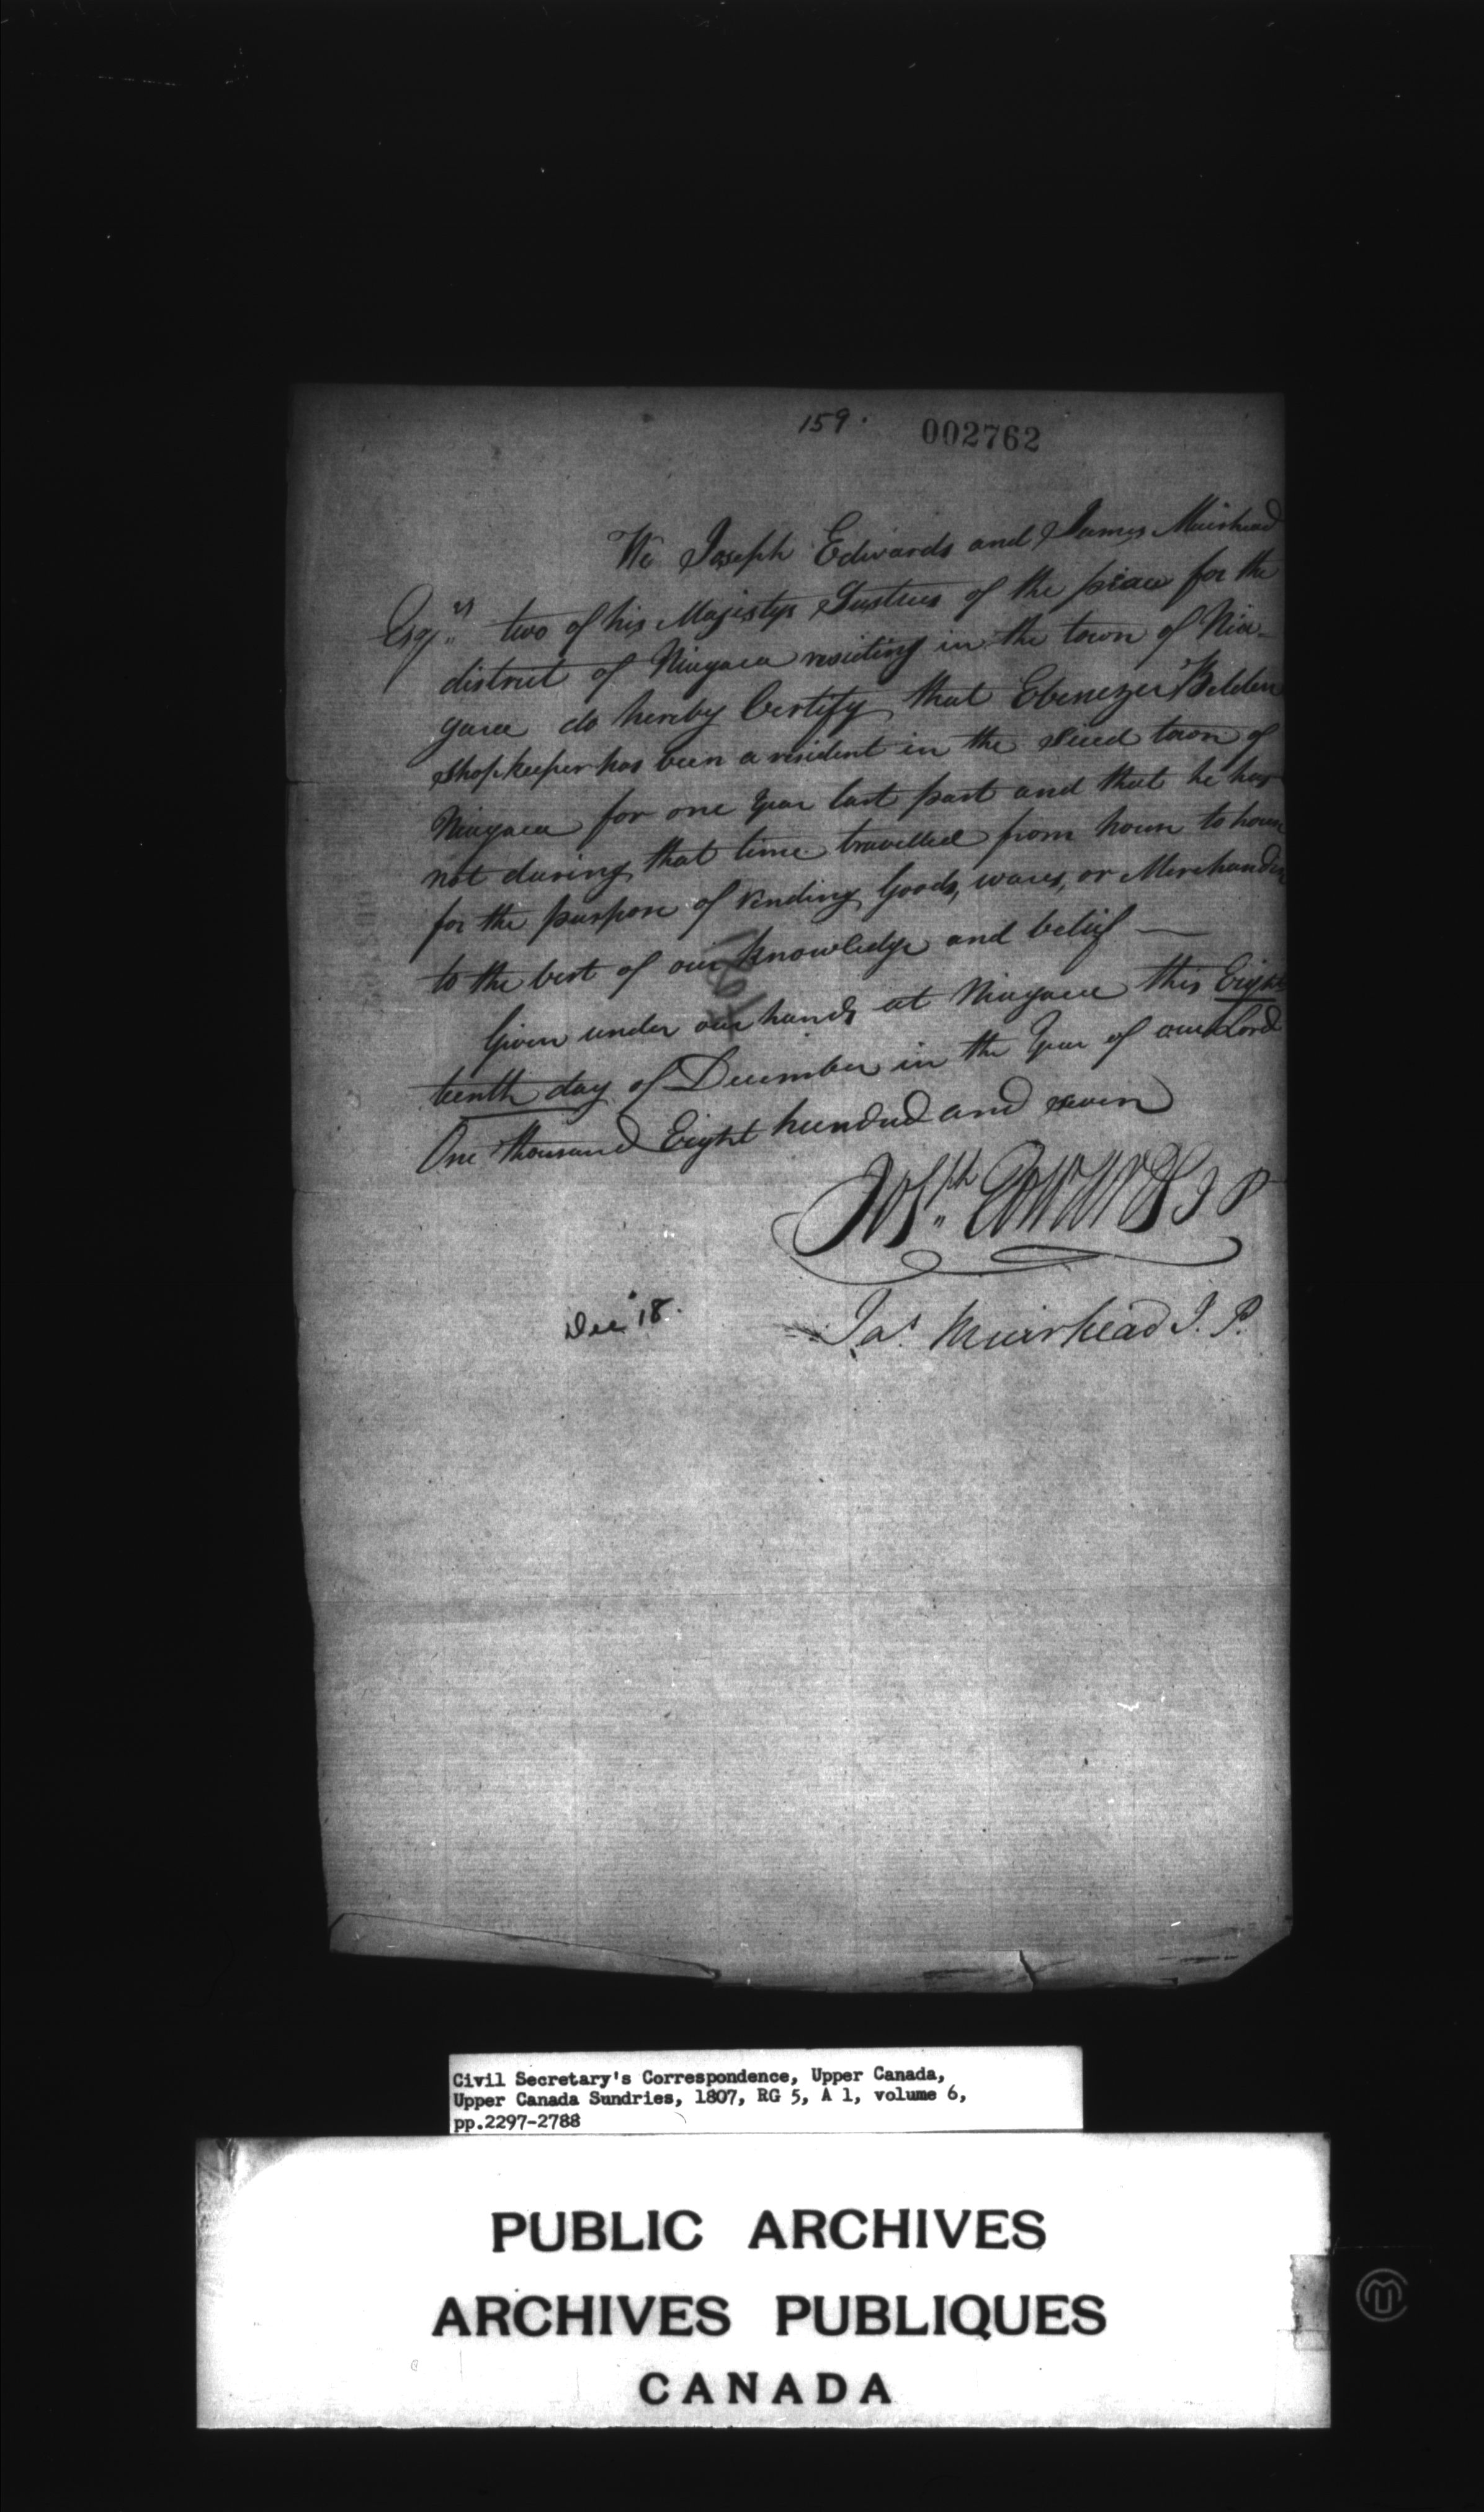 159.
002762
We Joseph Edwards and James Muirhead
Esqrs two of his Majestys Justices of the peace for the
district of Niagara residing in the town of Nia-
gara do hereby Certify that Ebenezer Belden
shopkeeper has been a resident in the said town of
Niagara for one Year last past and that he has
not during that time travelled from house to house
for the purpose of vending Goods, wares, or Merchandize
to the best of our knowledge and belief —
Given under our hands at Niagara this Eigh
teenth day of December in the Year of our Lord
One thousand Eight hundred and seven
Josph Edwards J P
Dec 18.
Jas. Muirhead J. P.
Civil Secretary's Correspondence, Upper Canada,
Upper Canada Sundries, 1807, RG 5, A 1, volume 6,
pp.2297-2788
PUBLIC ARCHIVES
ARCHIVES PUBLIQUES
CANADA